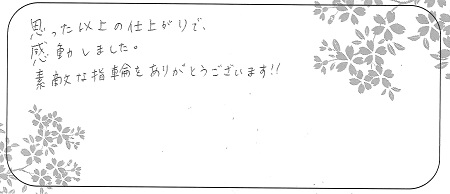 思った以上の仕上がりで、
感動しました。
素敵な指輪をありがとうございます!!